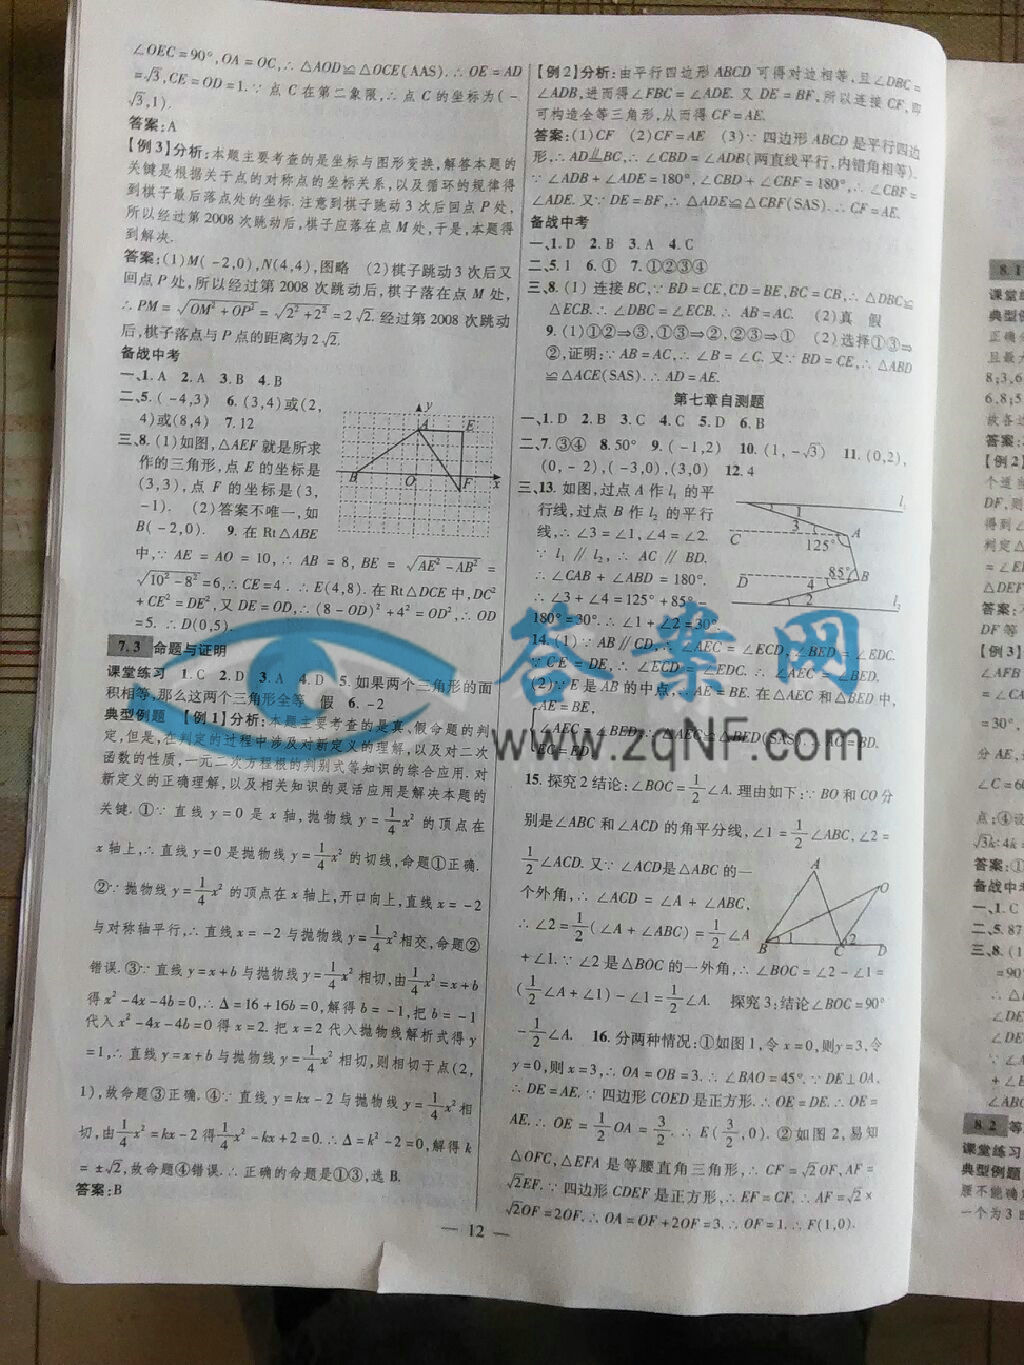 ∠OEC=90°,OA=OC,∴△AOD≌△OCE(AAS).∴OE=AD
=√3,CE=OD=1.∵点C在第二象限,∴点C的坐标为(-
√3,1).
答案:A
【例3】分析:本题主要考查的是坐标与图形变换,解答本题的
关键是根据关于点的对称点的坐标关系,以及循环的规律得
到棋子最后落点处的坐标.注意到棋子跳动3次后回点P处,
所以经过第2008次跳动后,棋子应落在点M处,于是,本题得
到解决.
答案:(1)M(-2,0),N(4,4),图略 (2)棋子跳动3次后又
回点P处,所以经过第2008次跳动后,棋子落在点M处,
∴PM=√(OM²+OP²)=√(2²+2²)=2√2.经过第2008次跳动
后,棋子落点与P点的距离为2√2.
备战中考
一、1.A 2.A 3.B 4.B
二、5.(-4,3) 6.(3,4)或(2,
4)或(8,4) 7.12
三、8.(1)如图,△AEF就是所求
作的三角形,点E的坐标是
(3,3),点F的坐标是(3,
-1). (2)答案不唯一,如
B(-2,0). 9.在Rt△ABE
y
A E
B O F x
中,∵AE=AO=10,∴AB=8,BE=√(AE²-AB²)=
√(10²-8²)=6,∴CE=4.∴E(4,8).在Rt△DCE中,DC²
+CE²=DE²,又DE=OD,∴(8-OD)²+4²=OD²,∴OD
=5.∴D(0,5).
7.3 命题与证明
课堂练习 1.C 2.D 3.A 4.D 5.如果两个三角形的面
积相等,那么这两个三角形全等 假 6.-2
典型例题 【例1】分析:本题主要考查的是真、假命题的判
定,但是,在判定的过程中涉及对新定义的理解,以及对二次
函数的性质,一元二次方程根的判别式等知识的综合应用.对
新定义的正确理解,以及相关知识的灵活应用是解决本题的
关键.①∵直线y=0是x轴,抛物线y=1/4x²的顶点在
x轴上,∴直线y=0是抛物线y=1/4x²的切线,命题①正确.
②∵抛物线y=1/4x²的顶点在x轴上,开口向上,直线x=-2
与对称轴平行,∴直线x=-2与抛物线y=1/4x²相交,命题②
错误.③∵直线y=x+b与抛物线y=1/4x²相切,由1/4x²=x+b
得x²-4x-4b=0,∴Δ=16+16b=0,解得b=-1,把b=-1
代入x²-4x-4b=0得x=2.把x=2代入抛物线解析式得y
=1,∴直线y=x+b与抛物线y=1/4x²相切,则相切于点(2,
1),故命题③正确.④∵直线y=kx-2与抛物线y=1/4x²相
切,由1/4x²=kx-2得1/4x²-kx+2=0.∴Δ=k²-2=0,解得k
=±√2,故命题④错误.∴正确的命题是①③,选B.
答案:B
【例2】分析:由平行四边形ABCD可得对边相等,且∠DBC=
∠ADB,进而得∠FBC=∠ADE.又DE=BF,所以连接CF,即
可构造全等三角形,从而得CF=AE.
答案:(1)CF (2)CF=AE (3)∵四边形ABCD是平行四边
形,∴AD∥BC,∴∠CBD=∠ADB(两直线平行,内错角相等).
∵∠ADB+∠ADE=180°,∠CBD+∠CBF=180°,∴∠CBF=
∠ADE.又∵DE=BF,∴△ADE≌△CBF(SAS).∴CF=AE.
备战中考
一、1.D 2.B 3.A 4.C
二、5.1 6.① 7.①②③④
三、8.(1)连接BC,∵BD=CE,CD=BE,BC=CB,∴△DBC≌
△ECB.∴∠DBC=∠ECB.∴AB=AC. (2)真 假
9.(1)①②⇒③,①③⇒②,②③⇒① (2)选择①③⇒
②,证明:∵AB=AC,∴∠B=∠C.又∵BD=CE,∴△ABD
≌△ACE(SAS).∴AD=AE.
第七章自测题
一、1.D 2.B 3.C 4.C 5.D 6.B
二、7.③④ 8.50° 9.(-1,2) 10.(1,-√3) 11.(0,2),
(0,-2),(-3,0),(3,0) 12.4
三、13.如图,过点A作l₁的平
行线,过点B作l₂的平行
线,∴∠3=∠1,∠4=∠2.
∵l₁∥l₂,∴AC∥BD.
∴∠CAB+∠ABD=180°,
∴∠3+∠4=125°+85°-
180°=30°.∴∠1+∠2=30°.
1 l₁
3 A
C 125°
D 85° B
4
2 l₂
14.(1)∵AB∥CD,∴∠AEC=∠ECD,∠BED=∠EDC.
∵CE=DE,∴∠ECD=∠EDC.∴∠AEC=∠BED.
(2)∵E是AB的中点,∴AE=BE.在△AEC和△BED中,
AE=BE,
∠AEC=∠BED,∴△AEC≌△BED(SAS).∴AC=BD.
EC=ED,
15.探究2结论:∠BOC=1/2∠A.理由如下:∵BO和CO分
别是∠ABC和∠ACD的角平分线,∠1=1/2∠ABC,∠2=
1/2∠ACD.又∵∠ACD是△ABC的一
个外角,∴∠ACD=∠A+∠ABC,
∴∠2=1/2(∠A+∠ABC)=1/2∠A
A O
B 1 C 2 D
+∠1.∵∠2是△BOC的一外角,∴∠BOC=∠2-∠1=
(1/2∠A+∠1)-∠1=1/2∠A. 探究3:结论∠BOC=90°
-1/2∠A. 16.分两种情况:①如图1,令x=0,则y=3,令
y=0,则x=3,∴OA=OB=3.∴∠BAO=45°.∵DE⊥OA,
∴DE=AE.∵四边形COED是正方形.∴OE=DE.∴OE=
AE.∴OE=1/2OA=3/2.∴E(3/2,0).②如图2,易知
△OFC,△EFA是等腰直角三角形,∴CF=√2OF,AF=
√2EF.∵四边形CDEF是正方形,∴EF=CF.∴AF=√2×
√2OF=2OF.∴OA=OF+2OF=3.∴OF=1.∴F(1,0).
— 12 —
答案网
www.zqNF.com
8.1
课堂练
典型例
正确分
且最大
8;3,6
6,8;5
故各边
答案:
【例2】
个道
DF,则
得到∠
判定△
=∠E
△DEF
答案:
DF等
【例3】
∠AFB
=∠CA
=30°,
分AE,
∠C=60
点;④设
√3k:4k=
答案:①
备战中考
一、1.C
二、5.87
三、8.(1
=90
∴△A
∠DE
∠DE
∵∠A
+∠E
∠ABC
8.2 等
课堂练习
典型例题
腰不能确
一个为3